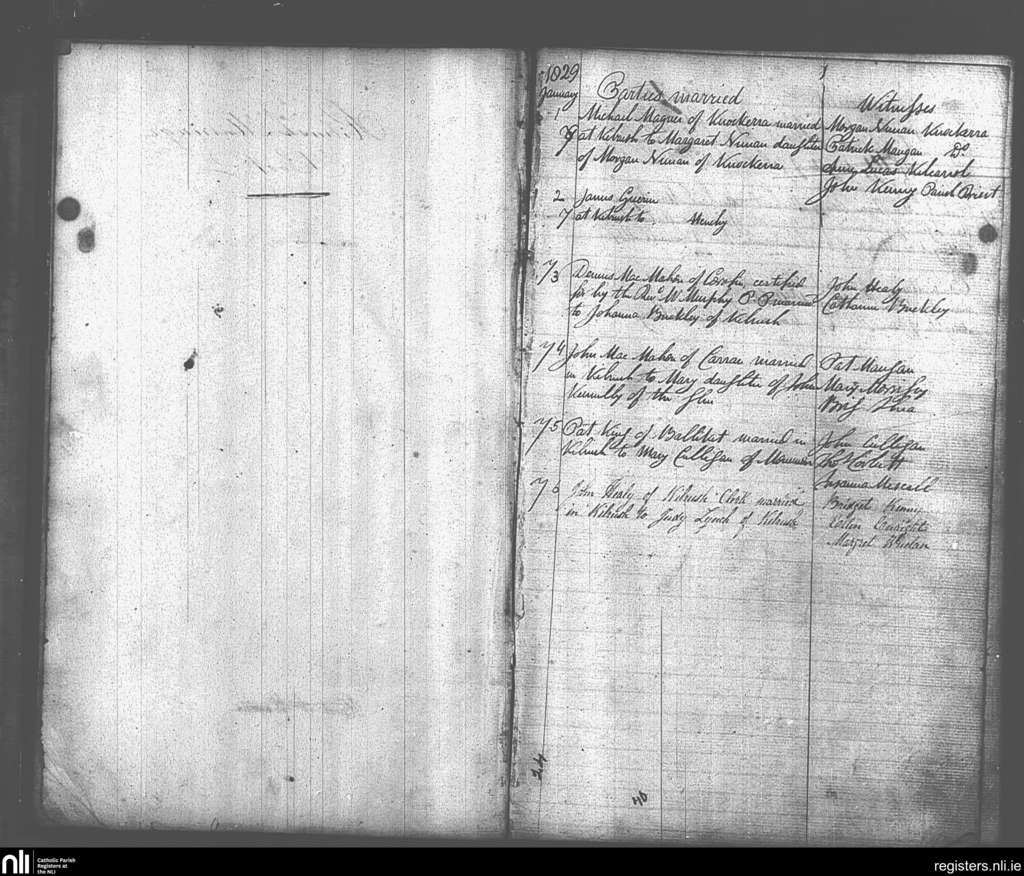 1829
January
Parties married
Witnesses
1 Michael Magner of Knockerra married
7 at Kilrush to Margaret Ninan daughter
of Morgan Ninan of Knockerra
Morgan Ninan Knockarra
Patrick Mangan Do.
Lucas Kilcarrol
John Kenny Parish Priest
2 James Guerin
7 at Kilrush to
7 3 Dennis Mac Mahon of certified
for by the Revd. Mr. Murphy P. P. married
to Johanna Buckley of Kilrush
John Healy
Catharine Buckley
7 4 John Mac Mahon of Carrac married
in Kilrush to Mary daughter of John
of the Glen
Pat Mangan
Mary
7 5 Pat King of married in
Kilrush to Mary Culligan of
John Culligan
Thos. Corbett
Susanna Mescall
7 6 John Healy of Kilrush Clerk married
in Kilrush to Judy Lynch of Kilrush
Bridget Kenny
Margret
nli
Catholic Parish
Registers at
the NLI
registers.nli.ie